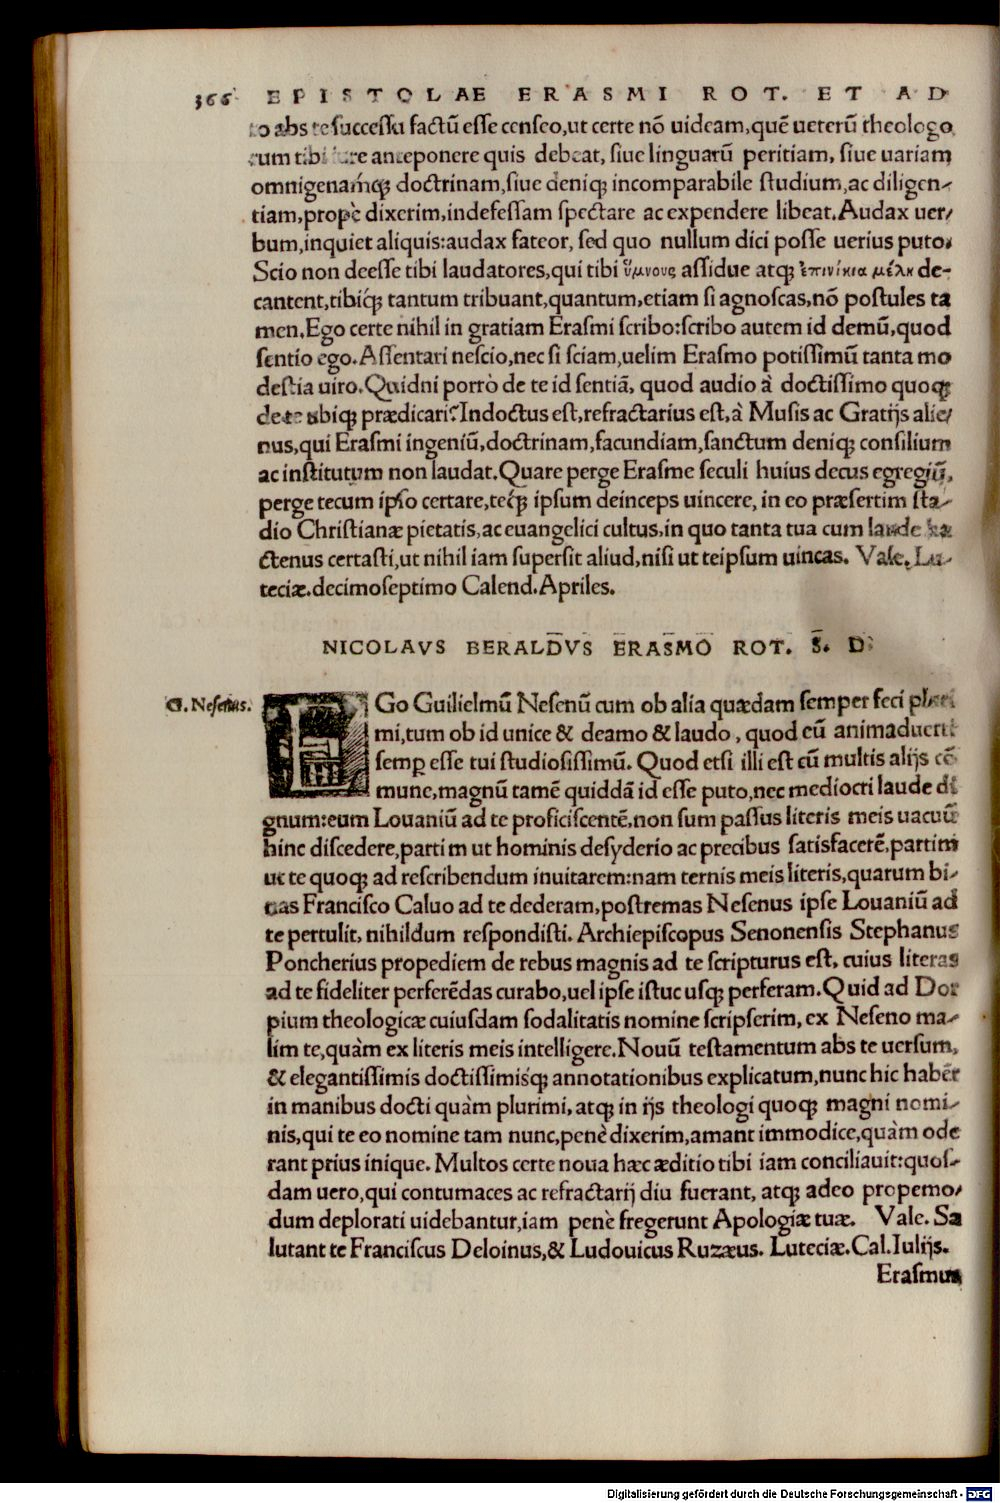 366 EPISTOLAE ERASMI ROT. ET AD
to abs te successu factū esse censeo, ut certe nō uideam, quē ueterū theologo
rum tibi iure anteponere quis debeat, siue linguarū peritiam, siue uariam
omnigenamq́ꝫ doctrinam, siue deniqꝫ incomparabile studium, ac diligen-
tiam, propè dixerim, indefessam spectare ac expendere libeat. Audax uer-
bum, inquiet aliquis: audax fateor, sed quo nullum dici posse uerius puto.
Scio non deesse tibi laudatores, qui tibi ὕμνους assidue atqꝫ ἐπινίκια μέλη de-
cantent, tibiq́ꝫ tantum tribuant, quantum, etiam si agnoscas, nō postules ta
men. Ego certe nihil in gratiam Erasmi scribo: scribo autem id demū, quod
sentio ego. Assentari nescio, nec si sciam, uelim Erasmo potissimū tanta mo
destia uiro. Quidni porrò de te id sentiā, quod audio à doctissimo quoqꝫ
de te ubiqꝫ prædicari? Indoctus est, refractarius est, à Musis ac Gratijs alie-
nus, qui Erasmi ingeniū, doctrinam, facundiam, sanctum deniqꝫ consilium
ac institutum non laudat. Quare perge Erasme seculi huius decus egregiū,
perge tecum ipso certare, teq́ꝫ ipsum deinceps uincere, in eo præsertim sta-
dio Christianæ pietatis, ac euangelici cultus, in quo tanta tua cum laude ha
ctenus certasti, ut nihil iam supersit aliud, nisi ut teipsum uincas. Vale. Lu-
teciæ. decimoseptimo Calend. Apriles.
NICOLAVS BERALDVS ERASMO ROT. S. D.
G. Nesenus.
EGo Guilielmū Nesenū cum ob alia quædam semper feci pluri
mi, tum ob id unice & deamo & laudo, quod eū animaduerti
semꝑ esse tui studiosissimū. Quod etsi illi est cū multis alijs cō
mune, magnū tamē quiddā id esse puto, nec mediocri laude di
gnum: eum Louaniū ad te proficiscentē, non sum passus literis meis uacuū
hinc discedere, partim ut hominis desyderio ac precibus satisfacerē, partim
ut te quoqꝫ ad rescribendum inuitarem: nam ternis meis literis, quarum bi-
nas Francisco Caluo ad te dederam, postremas Nesenus ipse Louaniū ad
te pertulit, nihildum respondisti. Archiepiscopus Senonensis Stephanus
Poncherius propediem de rebus magnis ad te scripturus est, cuius literas
ad te fideliter perferēdas curabo, uel ipse istuc usqꝫ perferam. Quid ad Dor
pium theologicæ cuiusdam sodalitatis nomine scripserim, ex Neseno ma-
lim te, quàm ex literis meis intelligere. Nouū testamentum abs te uersum,
& elegantissimis doctissimisq́ꝫ annotationibus explicatum, nunc hic habēt
in manibus docti quàm plurimi, atqꝫ in ijs theologi quoqꝫ magni nomi-
nis, qui te eo nomine tam nunc, penè dixerim, amant immodice, quàm ode
rant prius inique. Multos certe noua hæc æditio tibi iam conciliauit: quos-
dam uero, qui contumaces ac refractarij diu fuerant, atqꝫ adeo propemo-
dum deplorati uidebantur, iam penè fregerunt Apologiæ tuæ. Vale. Sa
lutant te Franciscus Deloinus, & Ludouicus Ruzæus. Luteciæ. Cal. Iulijs.
Erasmus
Digitalisierung gefördert durch die Deutsche Forschungsgemeinschaft - DFG